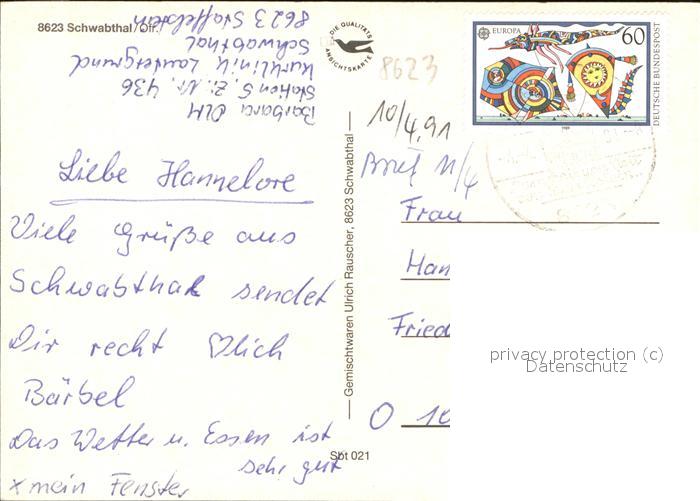 8623 Schwabthal/Ofr.
Barbara
Station 5 Z. Nr. 436
Kurklinik Lautergrund
Schwabthal
8623 Staffelstein
DIE QUALITÄTS
ANSICHTSKARTE
8623
EUROPA
60
DEUTSCHE BUNDESPOST
1989
10/4.91
Brief 11/4
Liebe Hannelore
Viele Grüße aus
Schwabthal sendet
Dir recht ♡lich
Bärbel
Das Wetter u. Essen ist
sehr gut
x mein Fenster
Gemischtwaren Ulrich Rauscher, 8623 Schwabthal
Sbt 021
Frau
Han
Fried
O 10
privacy protection (c)
Datenschutz